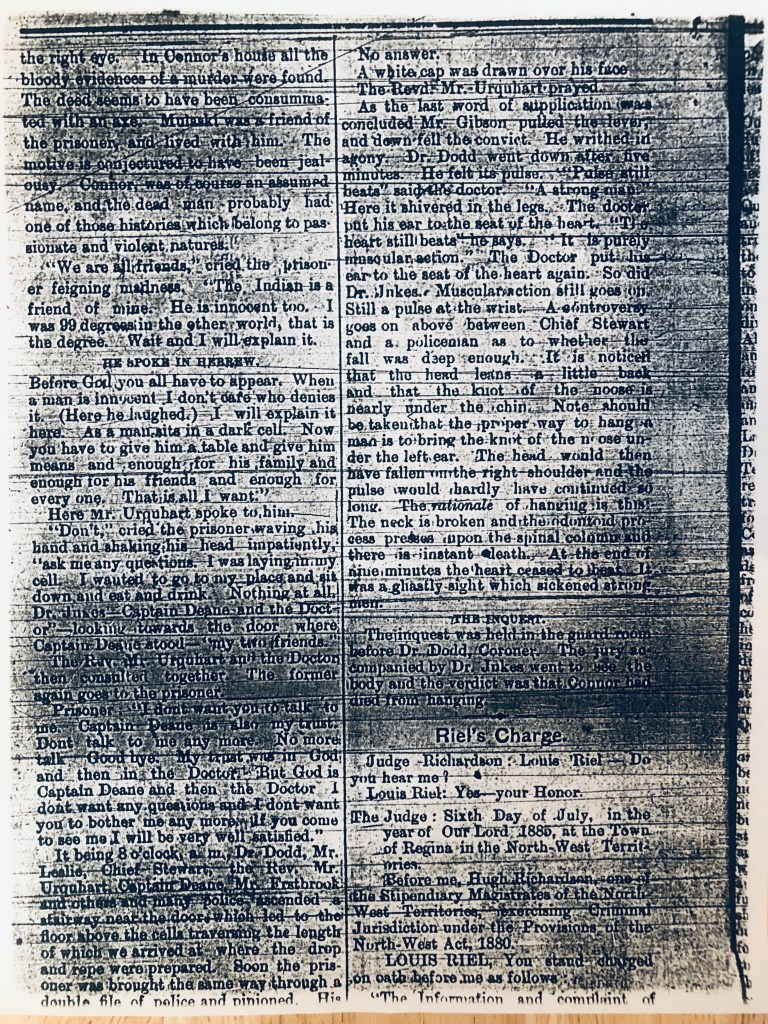 the right eye. In Connor's house all the
bloody evidences of a murder were found.
The deed seems to have been consumma-
ted with an axe. Mulaski was a friend of
the prisoner, and lived with him. The
motive is conjectured to have been jeal-
ousy. Connor, was of course an assumed
name, and the dead man probably had
one of those histories which belong to pas-
sionate and violent natures."
"We are all friends," cried the prison
er feigning madness. "The Indian is a
friend of mine. He is innocent too. I
was 99 degrees in the other world, that is
the degree. Wait and I will explain it.
HE SPOKE IN HEBREW.
Before God you all have to appear. When
a man is innocent I don't care who denies
it. (Here he laughed.) I will explain it
here. As a man sits in a dark cell. Now
you have to give him a table and give him
means and enough for his family and
enough for his ffriends and enough for
every one. That is all I want."
Here Mr. Urquhart spoke to him.
"Don't," cried the prisoner waving his
hand and shaking his head impatiently,
"ask me any questions. I was laying in my
cell. I wanted to go to my place and sit
down and eat and drink. Nothing at all,
Dr. Jukes—Captain Deane and the Doct-
or"—looking towards the door where
Captain Deane stood—"my two friends."
The Rev. Mr. Urquhart and the Doctor
then consulted together. The former
again goes to the prisoner.
Prisoner—"I dont want you to talk to
me. Captain Deane is also my trust.
Dont talk to me any more. No more
talk Good bye. My trust was in God
and then in the Doctor. But God is
Captain Deane and then the Doctor I
dont want any questions and I dont want
you to bother me any more. If you come
to see me I will be very well satisfied."
It being 8 o'clock, a. m., Dr. Dodd, Mr.
Leslie, Chief Stewart, the Rev. Mr.
Urquhart, Captain Deane, Mr. Erstbrook
and others and many police ascended a
stairway near the door which led to the
floor above the cells traversing the length
of which we arrived at where the drop
and rope were prepared. Soon the pris-
oner was brought the same way through a
double file of police and pinioned. His
No answer.
A white cap was drawn over his face
The Revd. Mr. Urquhart prayed.
As the last word of supplication was
concluded Mr. Gibson pulled the lever,
and down fell the convict. He writhed in
agony. Dr. Dodd went down after five
minutes. He felt its pulse. "Pulse still
beats" said the doctor. "A strong man."
Here it shivered in the legs. The doctor
put his ear to the seat of the heart. "The
heart still beats" he says. "It is purely
muscular action." The Doctor put his
ear to the seat of the heart again. So did
Dr. Jukes. Muscular action still goes on.
Still a pulse at the wrist. A controversy
goes on above between Chief Stewart
and a policeman as to whether the
fall was deep enough. It is noticed
that the head leans a little back
and that the knot of the noose is
nearly under the chin. Note should
be taken that the proper way to hang a
man is to bring the knot of the noose un-
der the left ear. The head would then
have fallen on the right shoulder and the
pulse would hardly have continued so
long. The rationale of hanging is this:
The neck is broken and the odontoid pro-
cess presses upon the spinal column and
there is instant death. At the end of
nine minutes the heart ceased to beat. It
was a ghastly sight which sickened strong
men.
THE INQUEST.
The inquest was held in the guard room
before Dr. Dodd, Coroner. The jury ac-
companied by Dr. Jukes went to see the
body and the verdict was that Connor had
died from hanging.
Riel's Charge.
Judge Richardson: Louis Riel—Do
you hear me?
Louis Riel: Yes—your Honor.
The Judge: Sixth Day of July, in the
year of Our Lord, 1885, at the Town
of Regina in the North-West Territ-
ories.
Before me, Hugh Richardson, one of
the Stipendiary Magistrates of the North-
West Territories, exercising Criminal
Jurisdiction under the Provisions of the
North-West Act, 1880.
LOUIS RIEL, You stand charged
on oath before me as follows
"The Information and complaint of